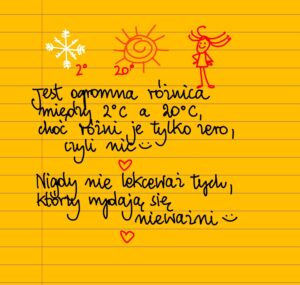 2° 20°
Jest ogromna różnica
między 2°C a 20°C,
choć różni je tylko zero,
czyli nic
Nigdy nie lekceważ tych,
którzy wydają się
nieważni